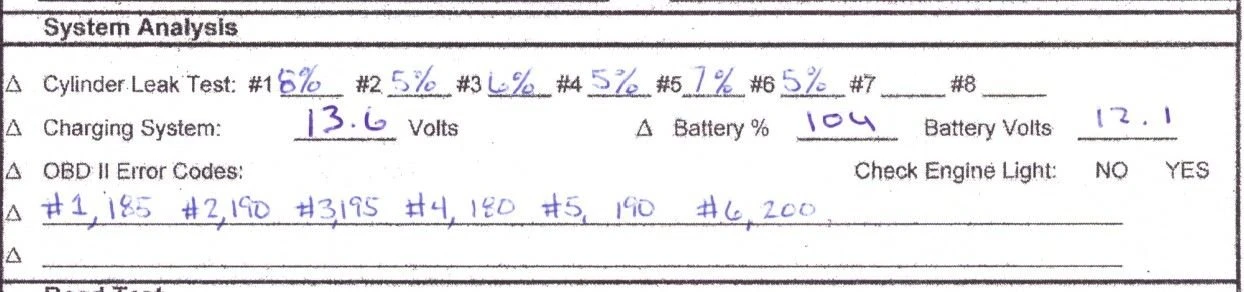 System Analysis
Δ Cylinder Leak Test: #1 6% #2 5% #3 6% #4 5% #5 7% #6 5% #7 ____ #8 ____
Δ Charging System: 13.6 Volts Δ Battery % 104 Battery Volts 12.1
Δ OBD II Error Codes: Check Engine Light: NO YES
Δ #1, 185 #2, 190 #3, 195 #4, 180 #5, 190 #6, 200
Δ
Road Test